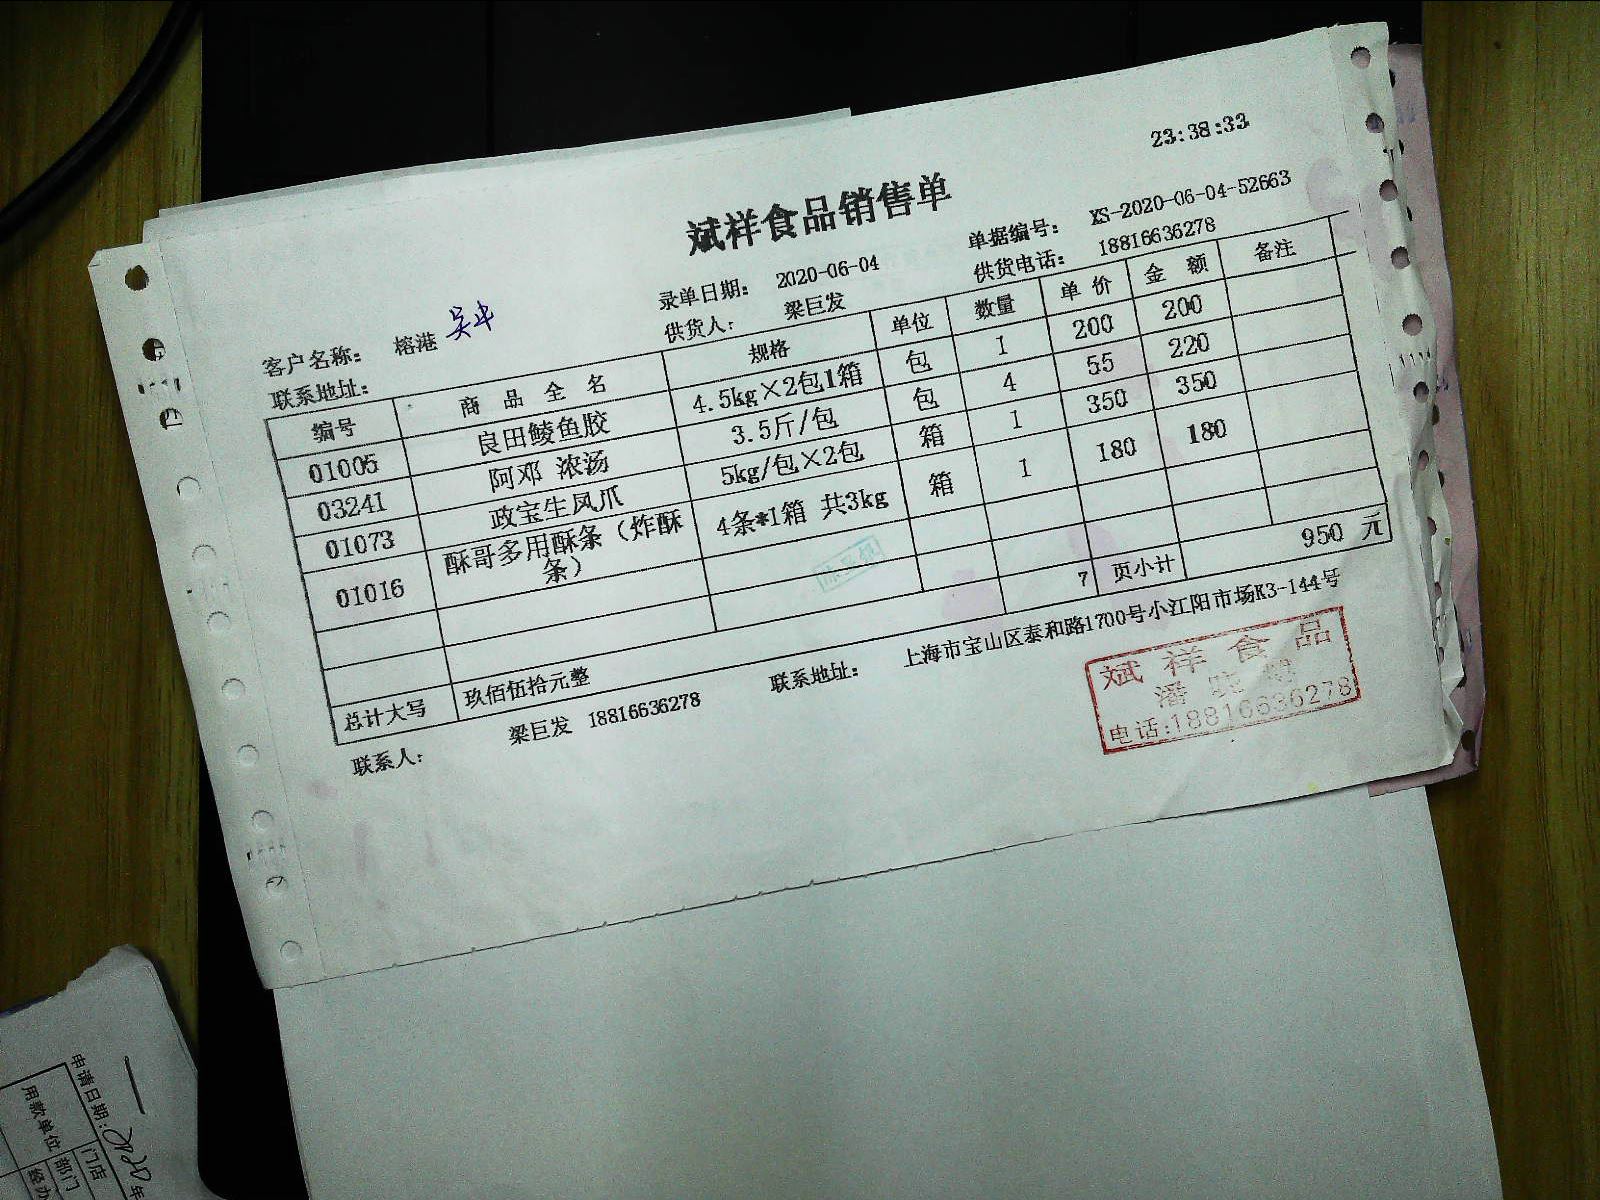 23:38:33
斌祥食品销售单
录单日期: 2020-06-04 单据编号: XS-2020-06-04-52663
客户名称: 榕港 吴中 供货人: 梁巨发 供货电话: 18816636278
联系地址:
编号 商品全名 规格 单位 数量 单价 金额 备注
01005 良田鲮鱼胶 4.5kg×2包1箱 包 1 200 200
03241 阿邓 浓汤 3.5斤/包 包 4 55 220
01073 政宝生凤爪 5kg/包×2包 箱 1 350 350
01016 酥哥多用酥条（炸酥条） 4条*1箱 共3kg 箱 1 180 180
7 页小计 950 元
总计大写 玖佰伍拾元整
联系人: 梁巨发 18816636278 联系地址: 上海市宝山区泰和路1700号小江阳市场K3-144号
斌祥食品
潘
电话:18816636278
申请日期:2020年
用款单位 门店
部门
经办